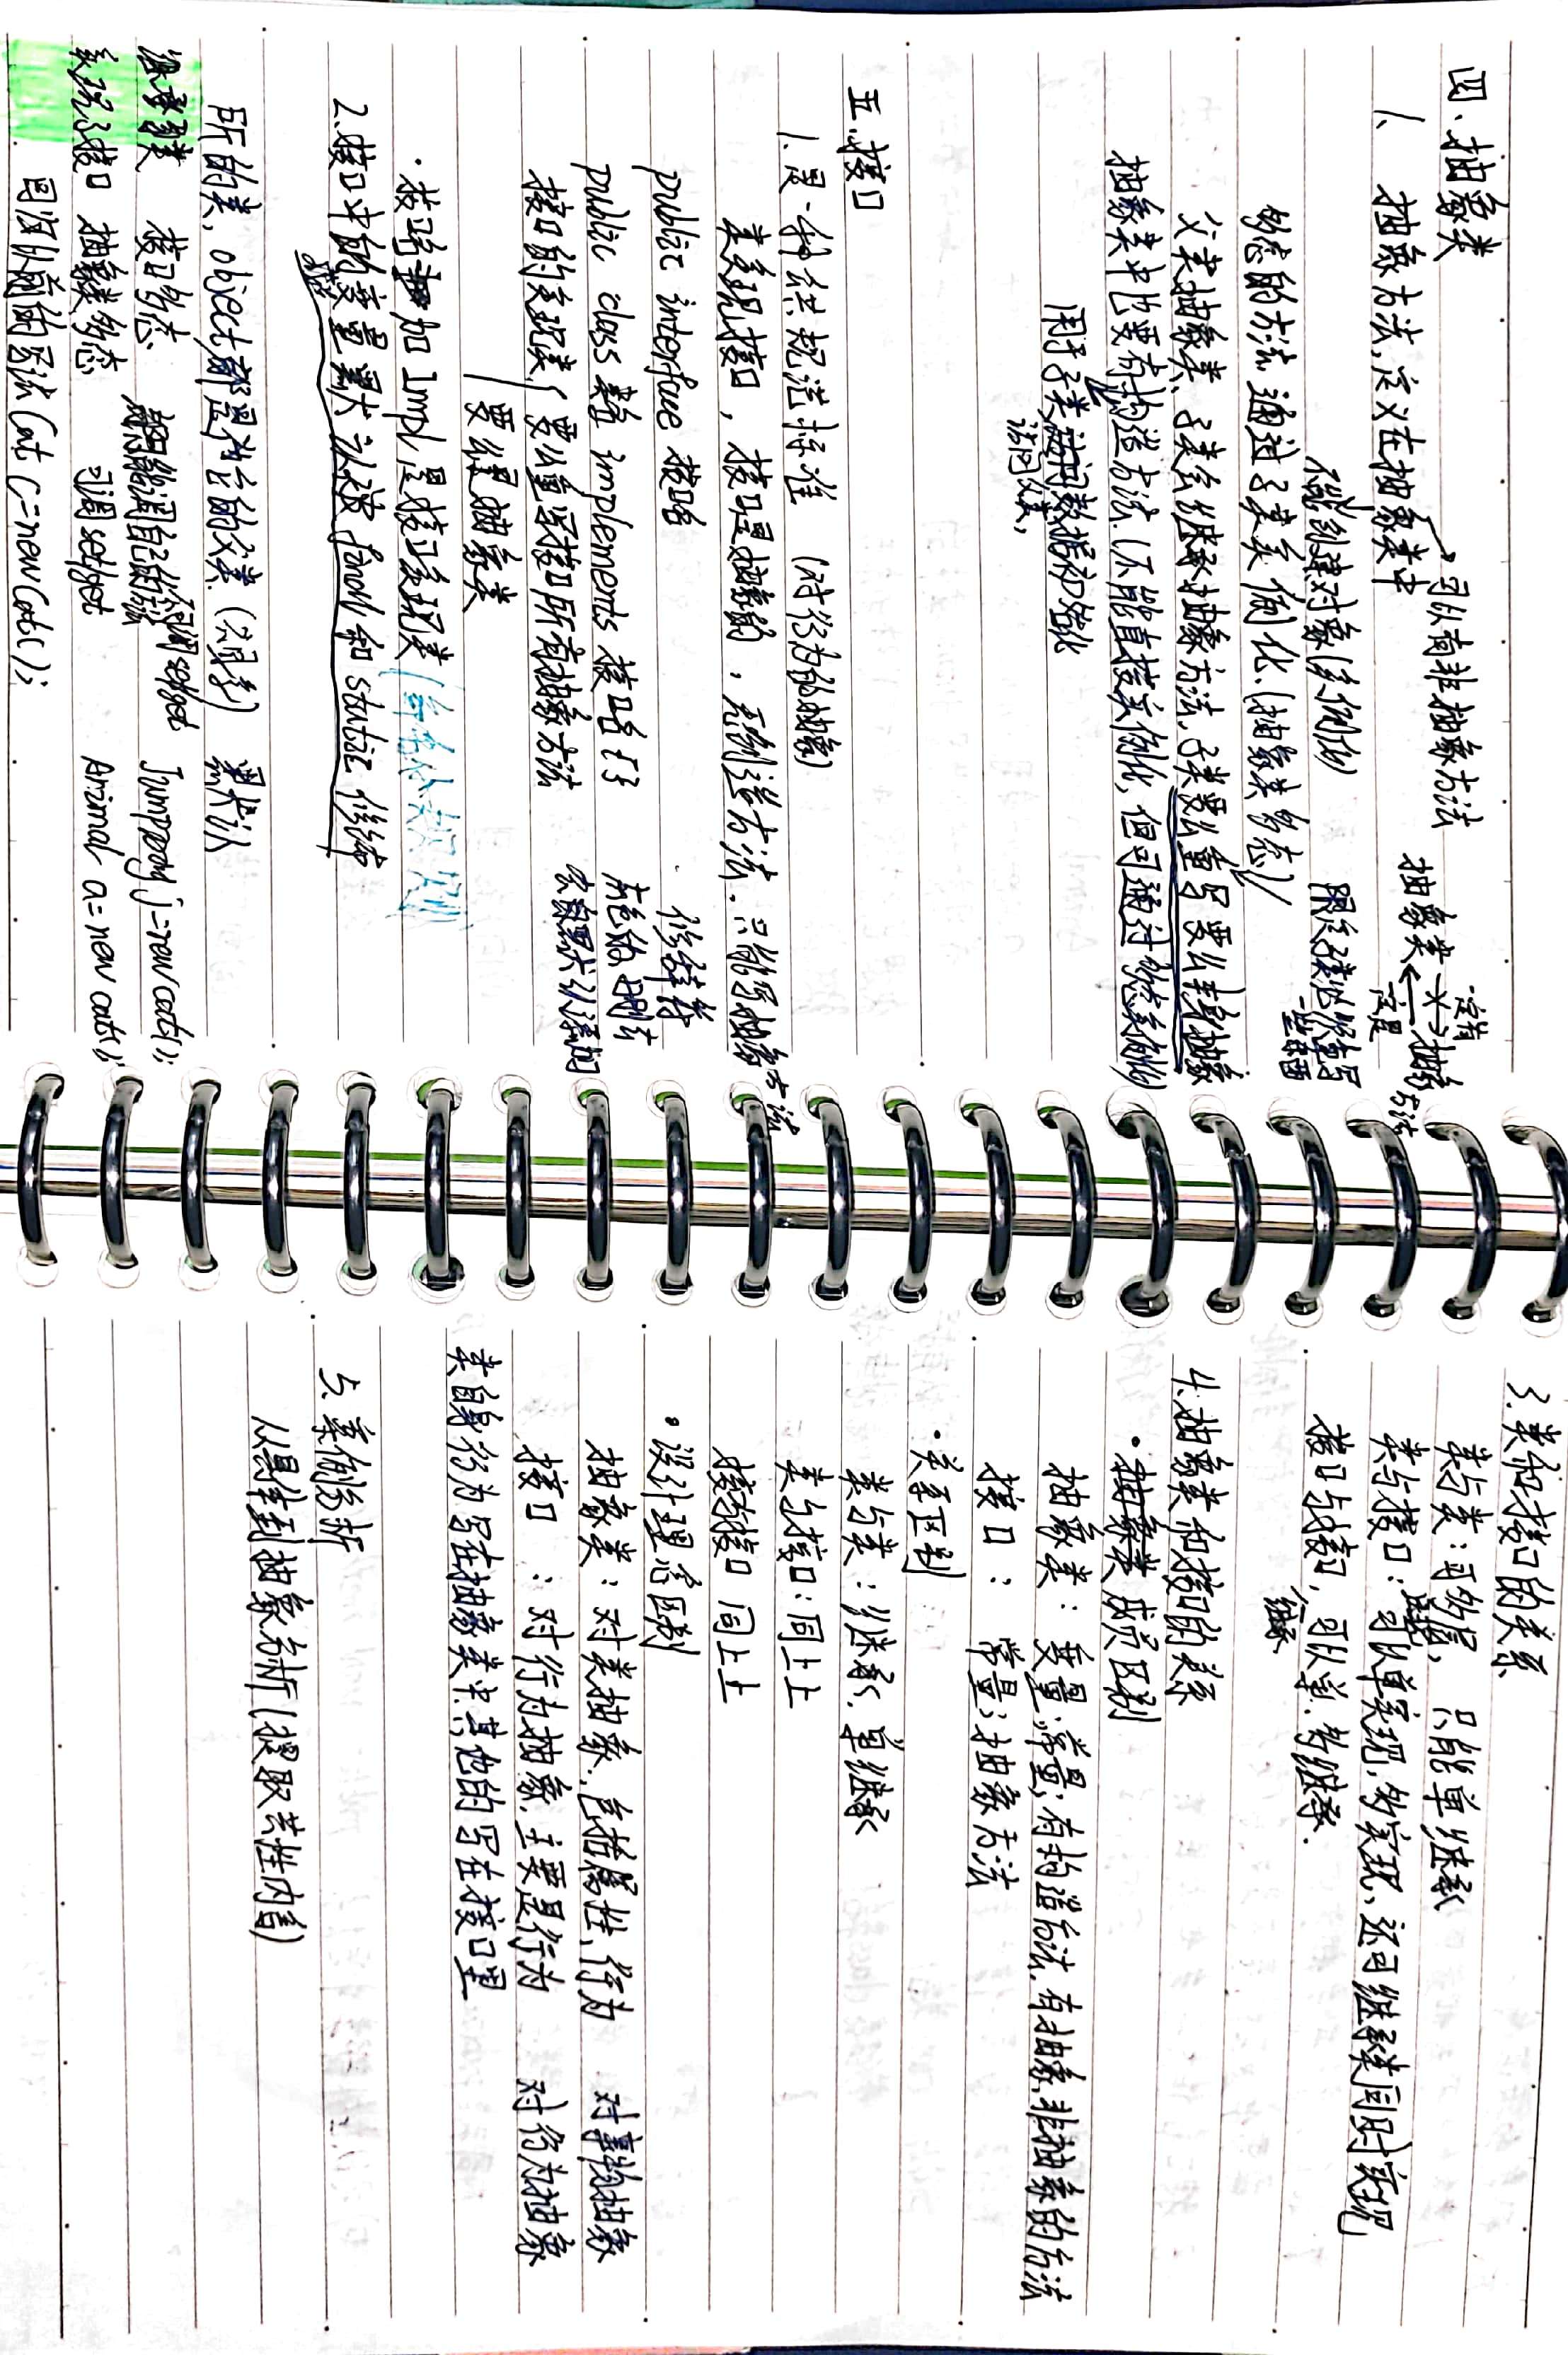 四、抽象类
→可以有非抽象方法
抽象类 一定有 抽象方法
一定是
1、 抽象方法,定义在抽象类中
不能创建对象(实例化)
限定子类必须重写
一些东西
多态的方法 通过子类实例化.(抽象类多态)
父类抽象类、子类会继承抽象方法,子类要么重写 要么本身抽象
抽象类中也要有构造方法.(不能直接实例化, 但可通过多态实例化)
用于子类访问数据初始化
访问父类,
五.接口
1.是一种公共规范标准 (对行为的抽象)
类实现接口, 接口是抽象的, 无创造方法.只能写抽象方法
public interface 接口名
修辞符
public class 类名 implements 接口名{}
灰色的可删去
会自默认添加
接口的实现类 要么重写接口所有抽象方法
要么是抽象类
·接口名 加Impl是接口实现类
2.接口中的变量默认被 final 和 static 修饰
所的类, object都是为它的父类. 默认
继承类 接口多态 都只能调自己的方法 不可调set/get Jumpping j=new cat();
实现了接口 抽象类多态 可调set/get Animal a=new cat();
回归以前的写法 Cat c=new Cat();
3.类和接口的关系
类与类:可多层, 只能单继承
类与接口: 可以单实现,多实现、还可继承类同时实现
接口与接口, 可以单.多继承.
继承
4.抽象类和接口的关系
·抽象类成员区别
抽象类: 变量;常量;有构造方法.有抽象.非抽象的方法
接口: 常量;抽象方法
·关系区别
类与类:继承.单继承
类与接口:同上上
接口与接口 同上上
·设计理念区别
抽象类:对类抽象.,包括属性、行为 对事物抽象
接口 :对行为抽象.主要是行为 对行为抽象
类自身行为写在抽象类中.其他的写在接口里
5、案例分析
从具体到抽象分析(提取共性内容)